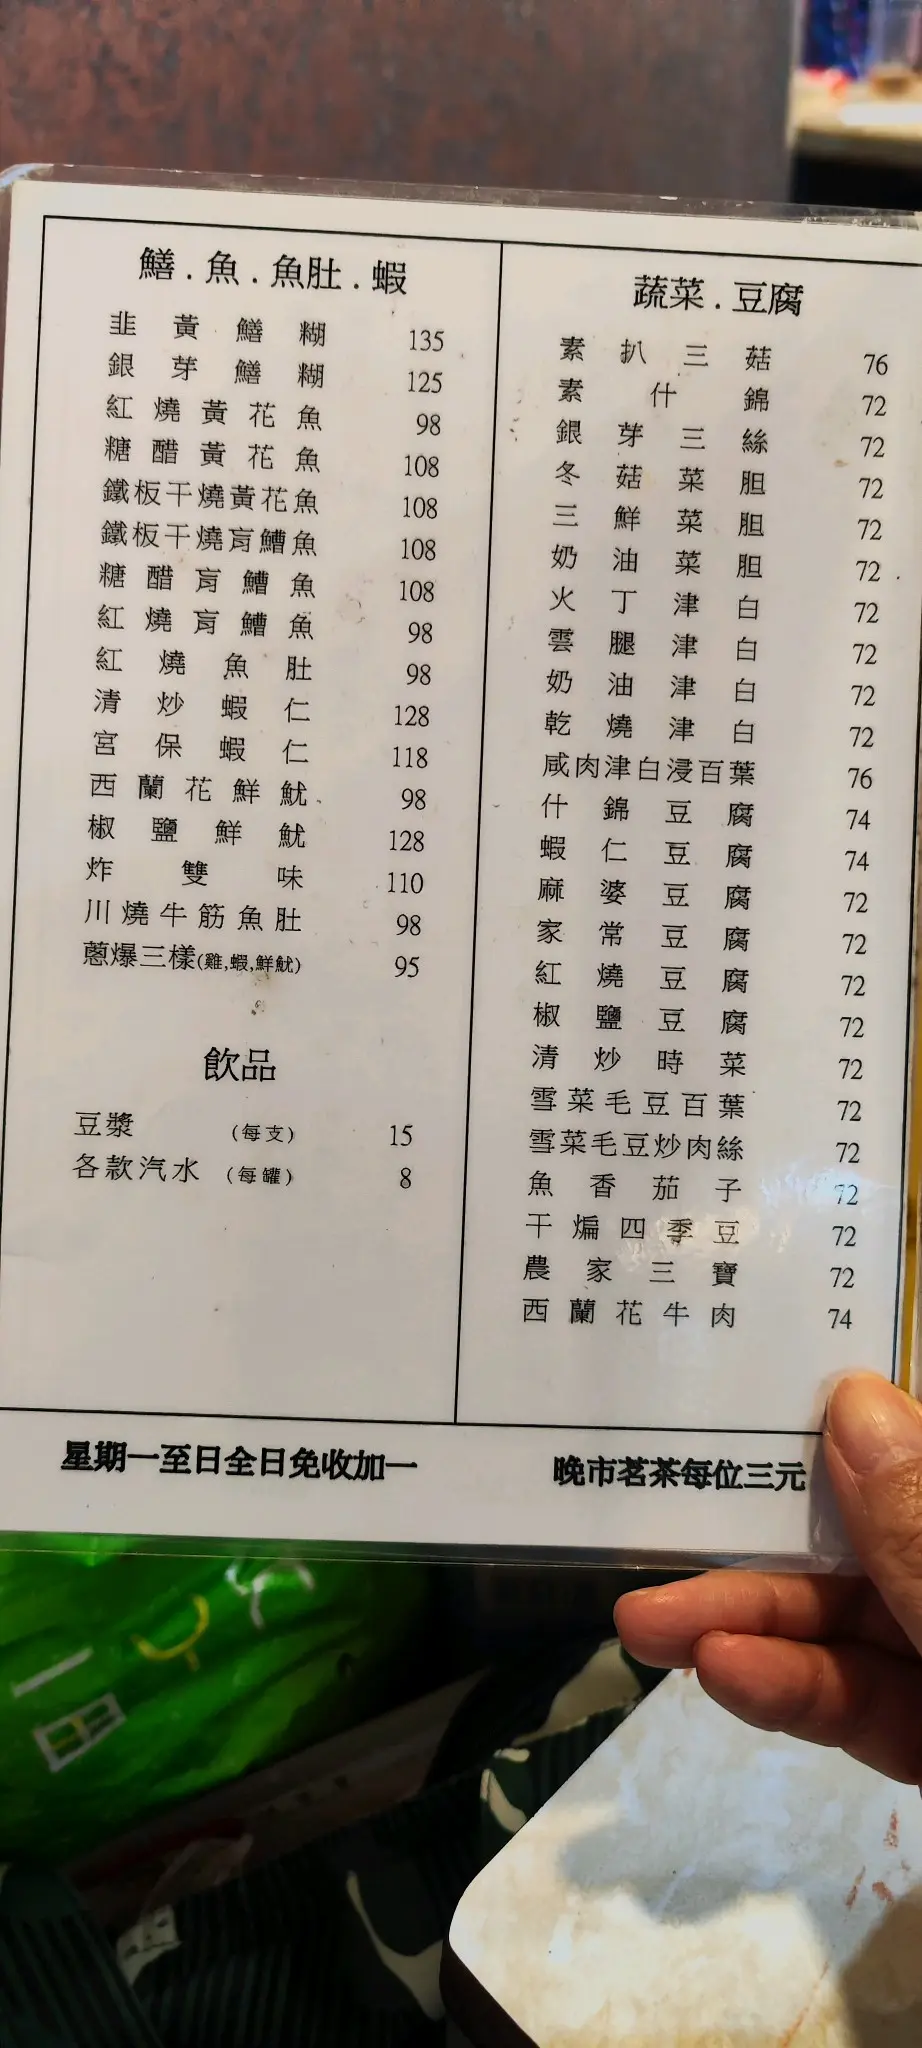 鱔.魚.魚肚.蝦
韭黃鱔糊 135
銀芽鱔糊 125
紅燒黃花魚 98
糖醋黃花魚 108
鐵板干燒黃花魚 108
鐵板干燒肓鰽魚 108
糖醋肓鰽魚 108
紅燒肓鰽魚 98
紅燒魚肚 98
清炒蝦仁 128
宮保蝦仁 118
西蘭花鮮魷 98
椒鹽鮮魷 128
炸雙味 110
川燒牛筋魚肚 98
蔥爆三樣(雞,蝦,鮮魷) 95
飲品
豆漿 (每支) 15
各款汽水 (每罐) 8
蔬菜.豆腐
素扒三菇 76
素什錦 72
銀芽三絲 72
冬菇菜胆 72
三鮮菜胆 72
奶油菜胆 72
火丁津白 72
雲腿津白 72
奶油津白 72
乾燒津白 72
咸肉津白浸百葉 76
什錦豆腐 74
蝦仁豆腐 74
麻婆豆腐 72
家常豆腐 72
紅燒豆腐 72
椒鹽豆腐 72
清炒時菜 72
雪菜毛豆百葉 72
雪菜毛豆炒肉絲 72
魚香茄子 72
干煸四季豆 72
農家三寶 72
西蘭花牛肉 74
星期一至日全日免收加一
晚市茗茶每位三元